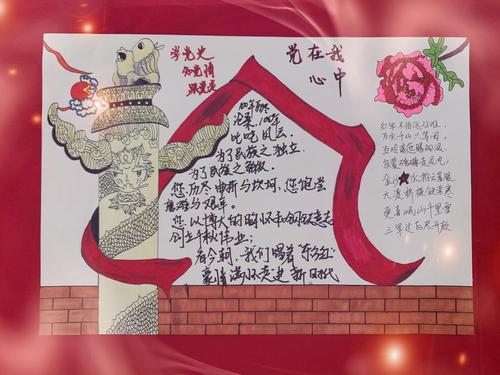 学党史
知党情
跟党走
党在我
心中
100年
沧桑,100年
叱咤风云,
为了民族之独立
为了民族之解放
您历尽艰辛与坎坷,您饱尝
磨难与艰辛。
您以博大的胸怀和钢铁意志
创立千秋伟业;
看今朝,我们唱着“东方红”
豪情满怀走进新时代
红军不怕远征难,
万水千山只等闲。
五岭逶迤腾细浪,
乌蒙磅礴走泥丸。
金沙水拍云崖暖,
大渡桥横铁索寒。
更喜岷山千里雪
三军过后尽开颜